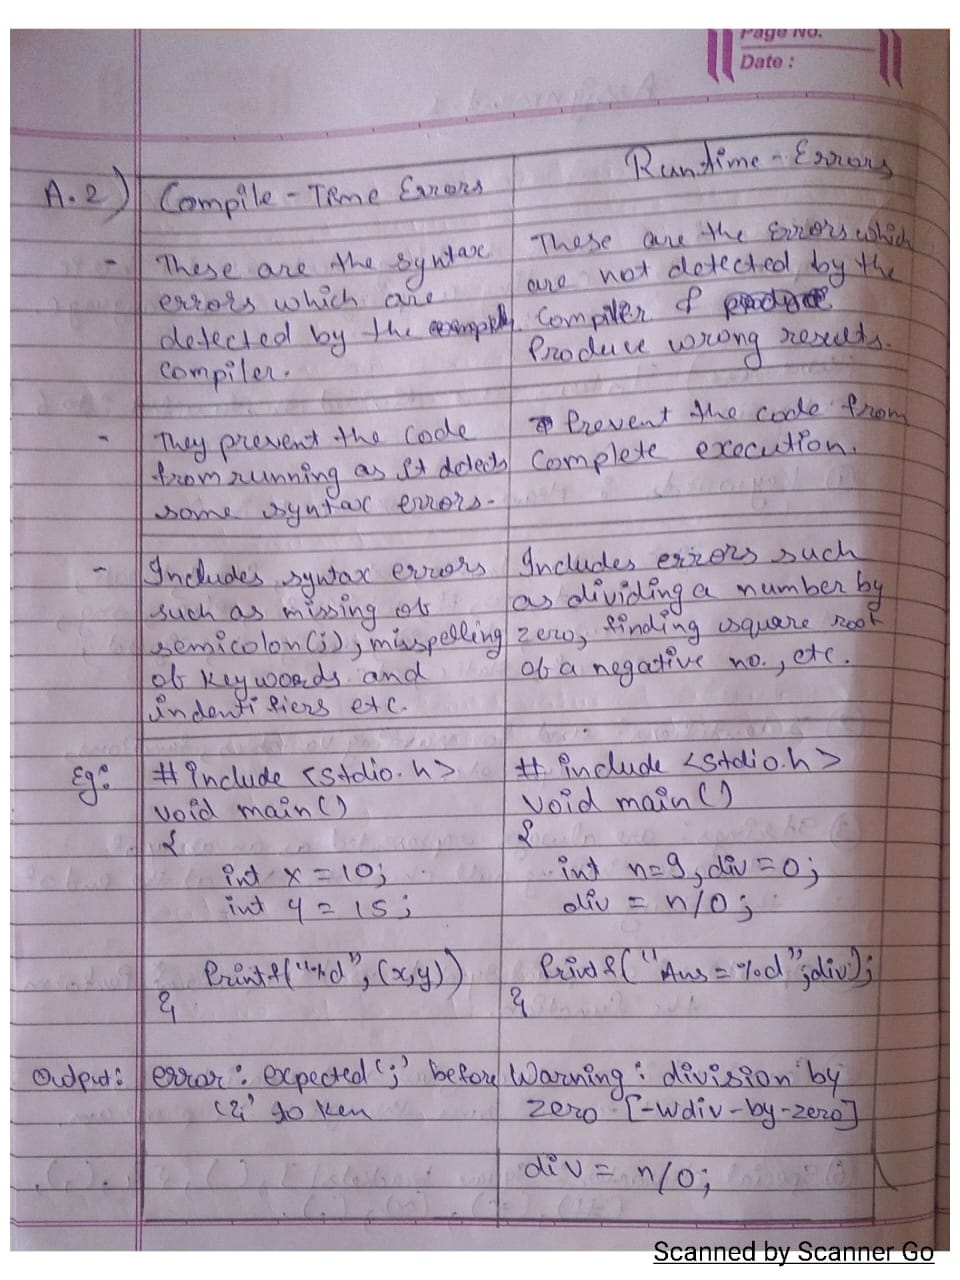 Page No.
Date :
A.2)
Compile - Time Errors
Runtime - Errors
- These are the syntax
errors which are
detected by the
compiler.
These are the Errors which
are not detected by the
Compiler &
Produce wrong results.
- They prevent the code
from running as it detects
some syntax errors.
Prevent the code from
complete execution.
- Includes syntax errors
such as missing of
semicolon(;), misspelling
of keywords and
indentifiers etc.
Includes errors such
as dividing a number by
zero, finding square root
of a negative no., etc.
Eg:
# include <stdio.h>
void main()
{
int x = 10;
int y = 15;
Printf("%d", (x,y))
}
# include <stdio.h>
void main()
{
int n=9, div = 0;
div = n/0;
Printf("Ans = %d", div);
}
Output:
error : expected ';' before
'}' token
Warning : division by
zero [-Wdiv-by-zero]
div = n/0;
Scanned by Scanner Go